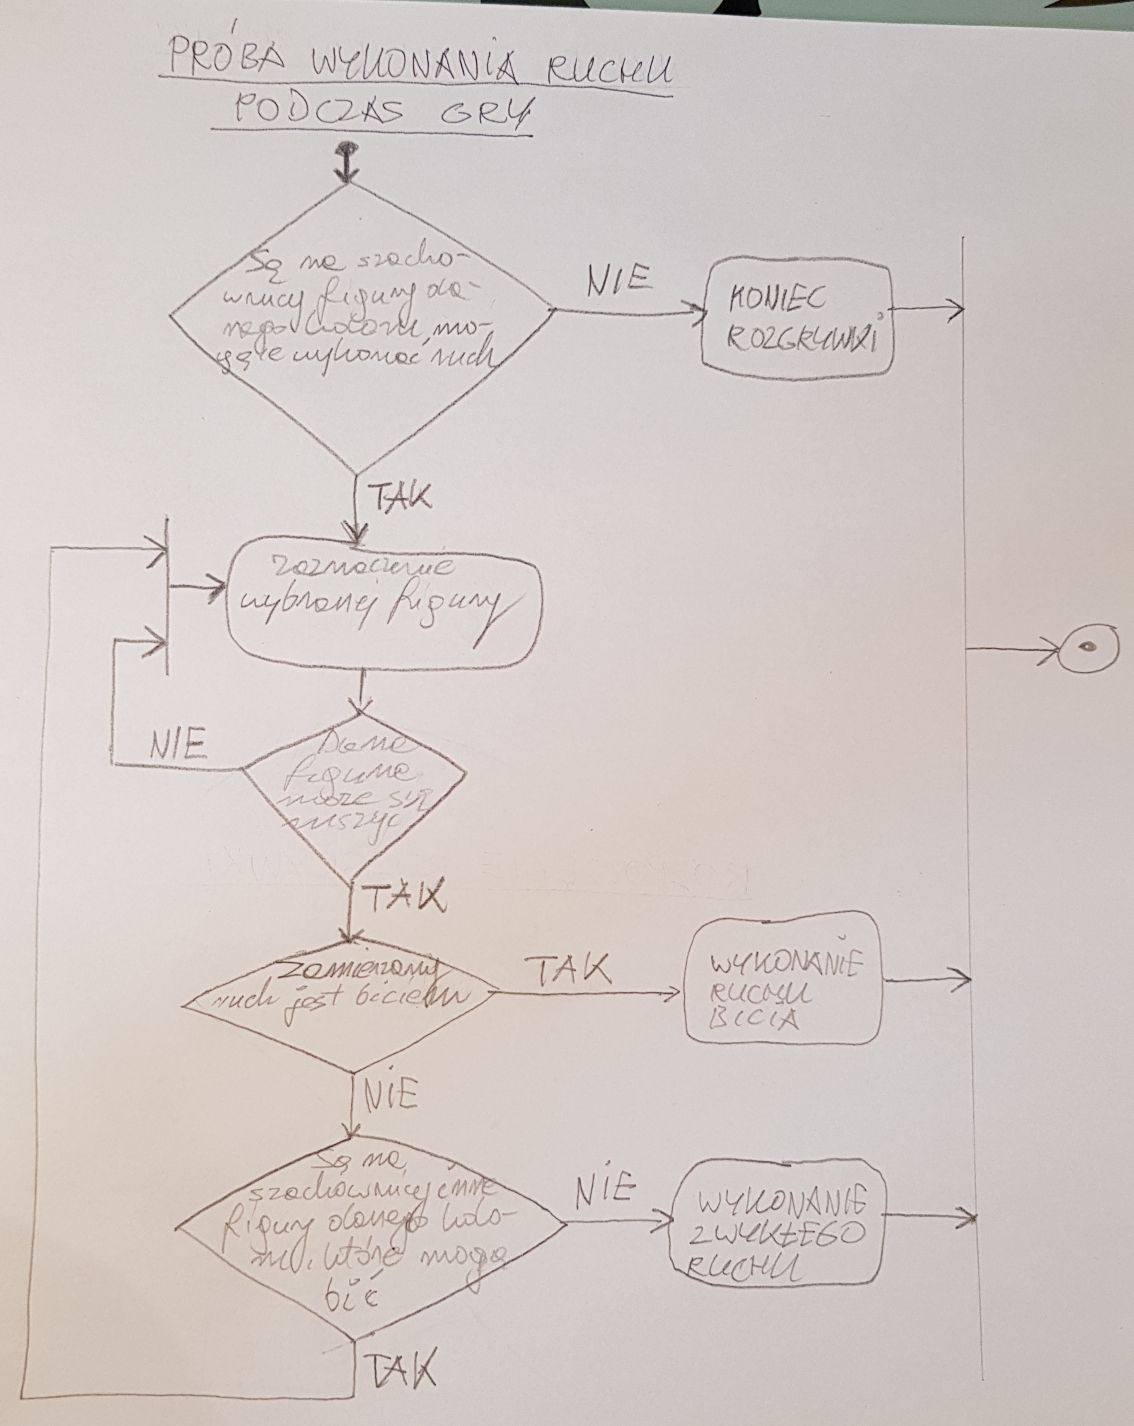 PRÓBA WYKONANIA RUCHU
PODCZAS GRY
Są na szacho-
wnicy figury da-
nego koloru, mo-
gące wykonać ruch
NIE
KONIEC
ROZGRYWKI
TAK
Zaznaczenie
wybranej figury
NIE
Dana
figura
może się
ruszyć
TAK
Zamierzony
ruch jest biciem
TAK
WYKONANIE
RUCHU
BICIA
NIE
Są na
szachownicy inne
figury danego kolo-
ru, które mogą
bić
NIE
WYKONANIE
ZWYKŁEGO
RUCHU
TAK